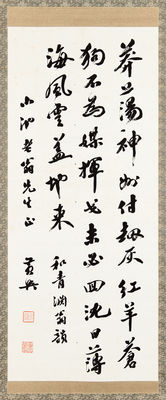 莽莽神州付劫灰紅羊蒼
狗不為媒揮戈未必回沈日薄
海風雲蓋地來
和青淵翁韻
小池老翁先生正
黃興